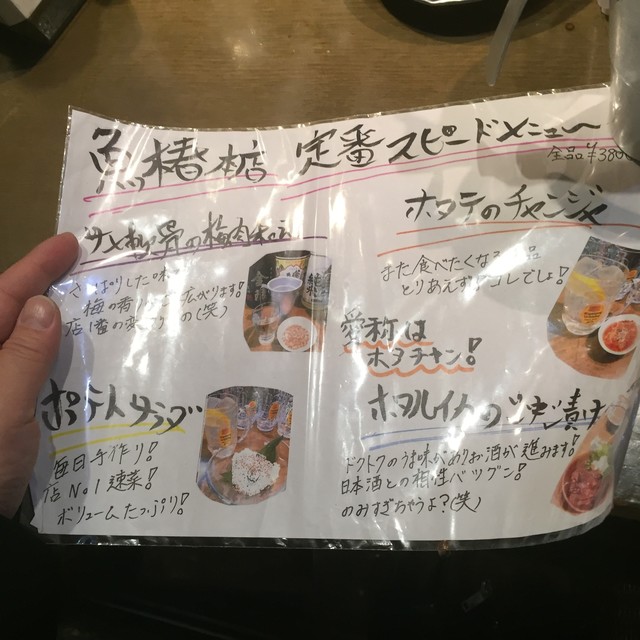 魚椿店 定番スピードメニュー
全品¥380
サメ軟骨の梅肉和え
さっぱりした
梅の香り 広がります!
店1番の (笑)
ホタテのチャンジャ
また食べたくなる 品
とりあえず コレでしょ!
愛称は
ホタチャン!
ポテトサラダ
毎日手作り!
店No.1速菜!
ボリュームたっぷり!
ホタルイカの沖漬け
ドクトクのうま味 お酒が進みます!
日本酒との相性バツグン!
のみすぎちゃうよ?(笑)